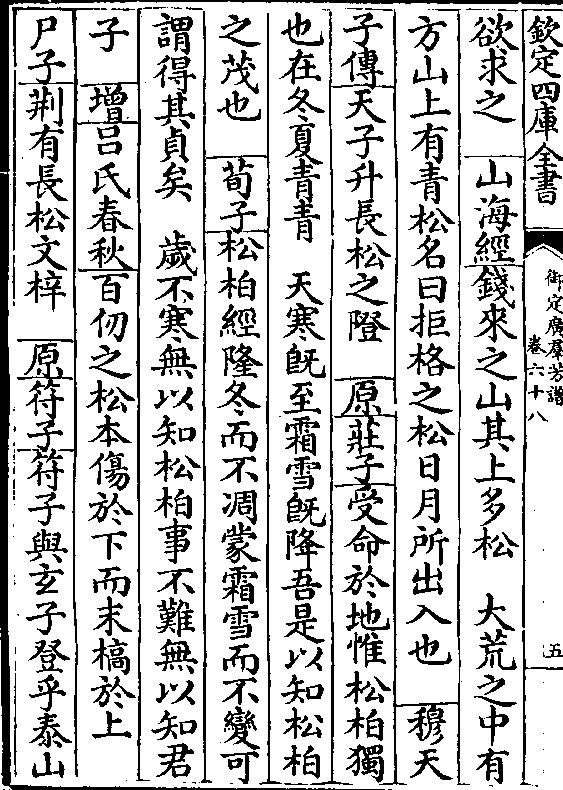 欽定四庫全書
御定廣羣芳譜
卷六十八
五
欲求之　山海經錢來之山其上多松　大荒之中有
方山上有青松名曰拒格之松日月所出入也　穆天
子傳天子升長松之隥　原莊子受命於地惟松柏獨
也在冬夏青青　天寒旣至霜雪旣降吾是以知松柏
之茂也　荀子松柏經隆冬而不凋蒙霜雪而不變可
謂得其貞矣　歲不寒無以知松柏事不難無以知君
子　增呂氏春秋百仞之松本傷於下而末槁於上
尸子荆有長松文梓　原符子符子與玄子登乎泰山